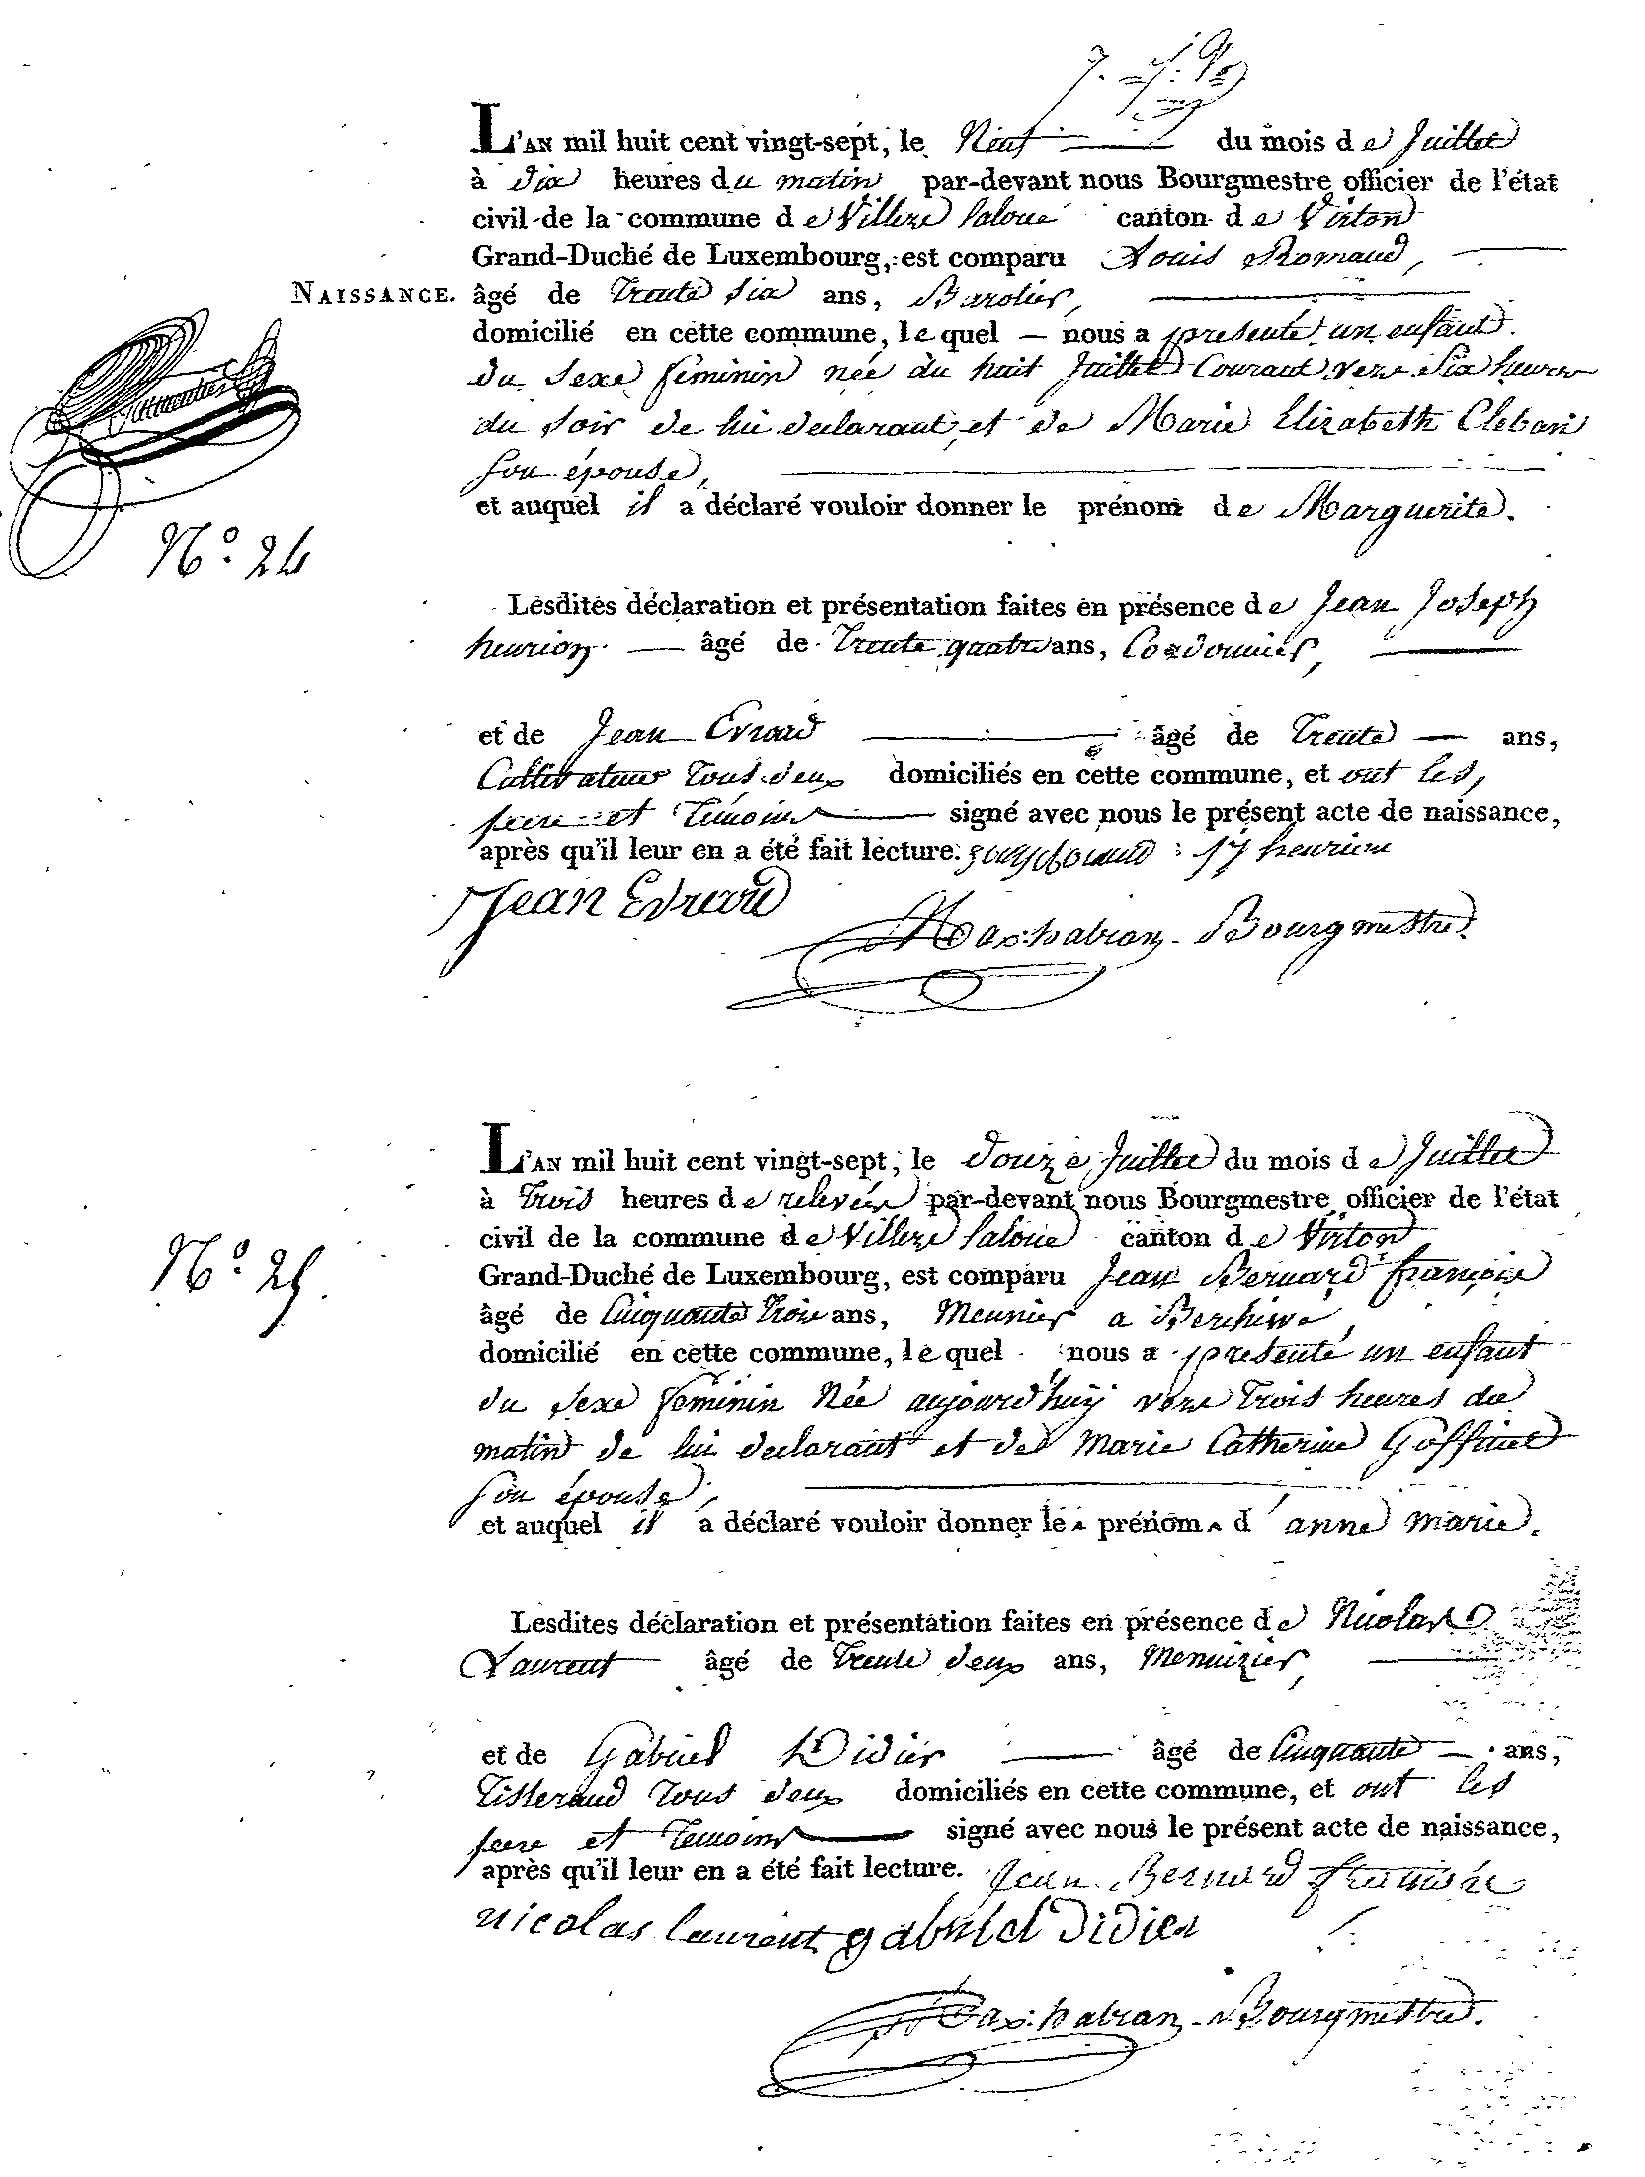 L'AN mil huit cent vingt-sept, le Neuf du mois de Juillet
à dix heures du matin par-devant nous Bourgmestre officier de l'état
civil de la commune de Villers laloue canton de Virton
Grand-Duché de Luxembourg, est comparu Louis Romand,
NAISSANCE. âgé de Trente six ans, Barolier,
domicilié en cette commune, lequel – nous a presenté un enfant
du sexe feminin née du huit Juillet Courant vers six heures
du soir de lui declarant, et de Marie Elizabeth
son épouse,
et auquel il a déclaré vouloir donner le prénom de Marguerite.
No. 24
Lesdites déclaration et présentation faites en présence de Jean Joseph
henrion — âgé de Trente quatre ans, Cordonnier,
et de Jean Evrard âgé de Trente — ans,
Cultivateur Tous deux domiciliés en cette commune, et ont les,
pere et Témoins signé avec nous le présent acte de naissance,
après qu'il leur en a été fait lecture. JJ henrion
Jean Evrard
Bourgmestre.
L'AN mil huit cent vingt-sept, le douze Juillet du mois de Juillet
à Trois heures de relevée par-devant nous Bourgmestre officier de l'état
civil de la commune de Villers laloue canton de Virton
No. 25.
Grand-Duché de Luxembourg, est comparu Jean Bernard françoise
âgé de Cinquante Trois ans, Meunier a Berchiwe,
domicilié en cette commune, lequel nous a presenté un enfant
du sexe féminin Née aujourd'huy vers Trois heures du
matin de lui declarant et de Marie Catherine Goffinet
son épouse,
et auquel il a déclaré vouloir donner le prénom d'anne marie.
Lesdites déclaration et présentation faites en présence de Nicolas
Laurent âgé de Trente deux ans, Menuizier,
et de Gabriel Didier âgé de Cinquante — ans,
Tisserand Tous deux domiciliés en cette commune, et ont les
pere et Temoins signé avec nous le présent acte de naissance,
après qu'il leur en a été fait lecture. Jean Bernard françoise
nicolas laurent gabriel Didier
Bourgmestre.